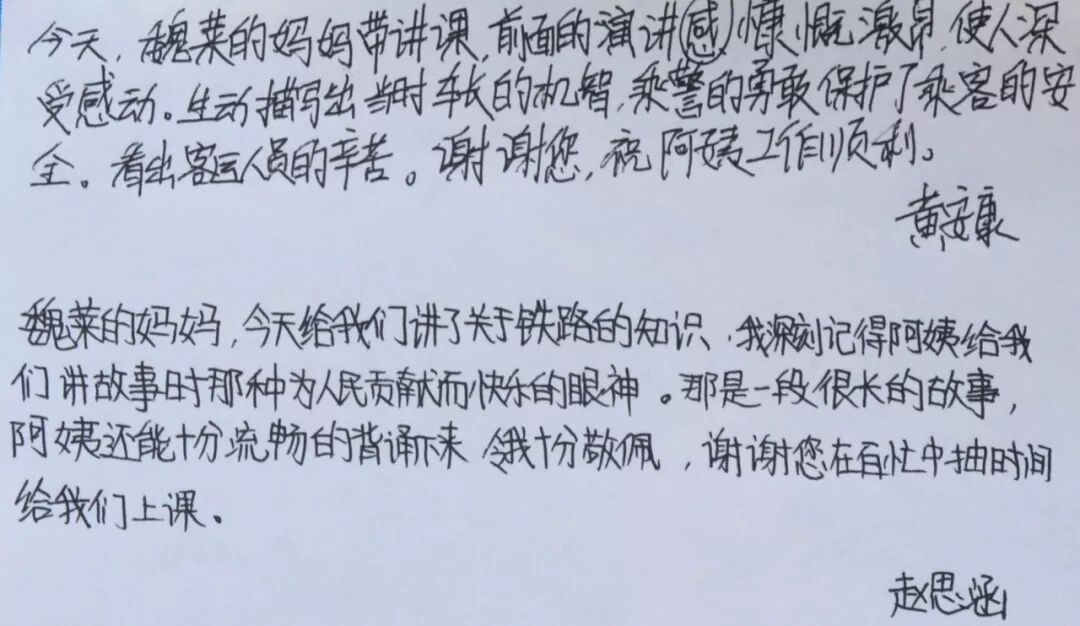 今天，魏莱的妈妈带讲课，前面的演讲感慷慨激昂，使人深
受感动。生动描写出当时车长的机智，乘警的勇敢保护了乘客的安
全。看出客运人员的辛苦。谢谢您，祝阿姨工作顺利。
黄安康
魏莱的妈妈，今天给我们讲了关于铁路的知识，我深刻记得阿姨给我
们讲故事时那种为人民贡献而快乐的眼神。那是一段很长的故事，
阿姨还能十分流畅的背诵下来 令我十分敬佩，谢谢您在百忙中抽时间
给我们上课。
赵思涵